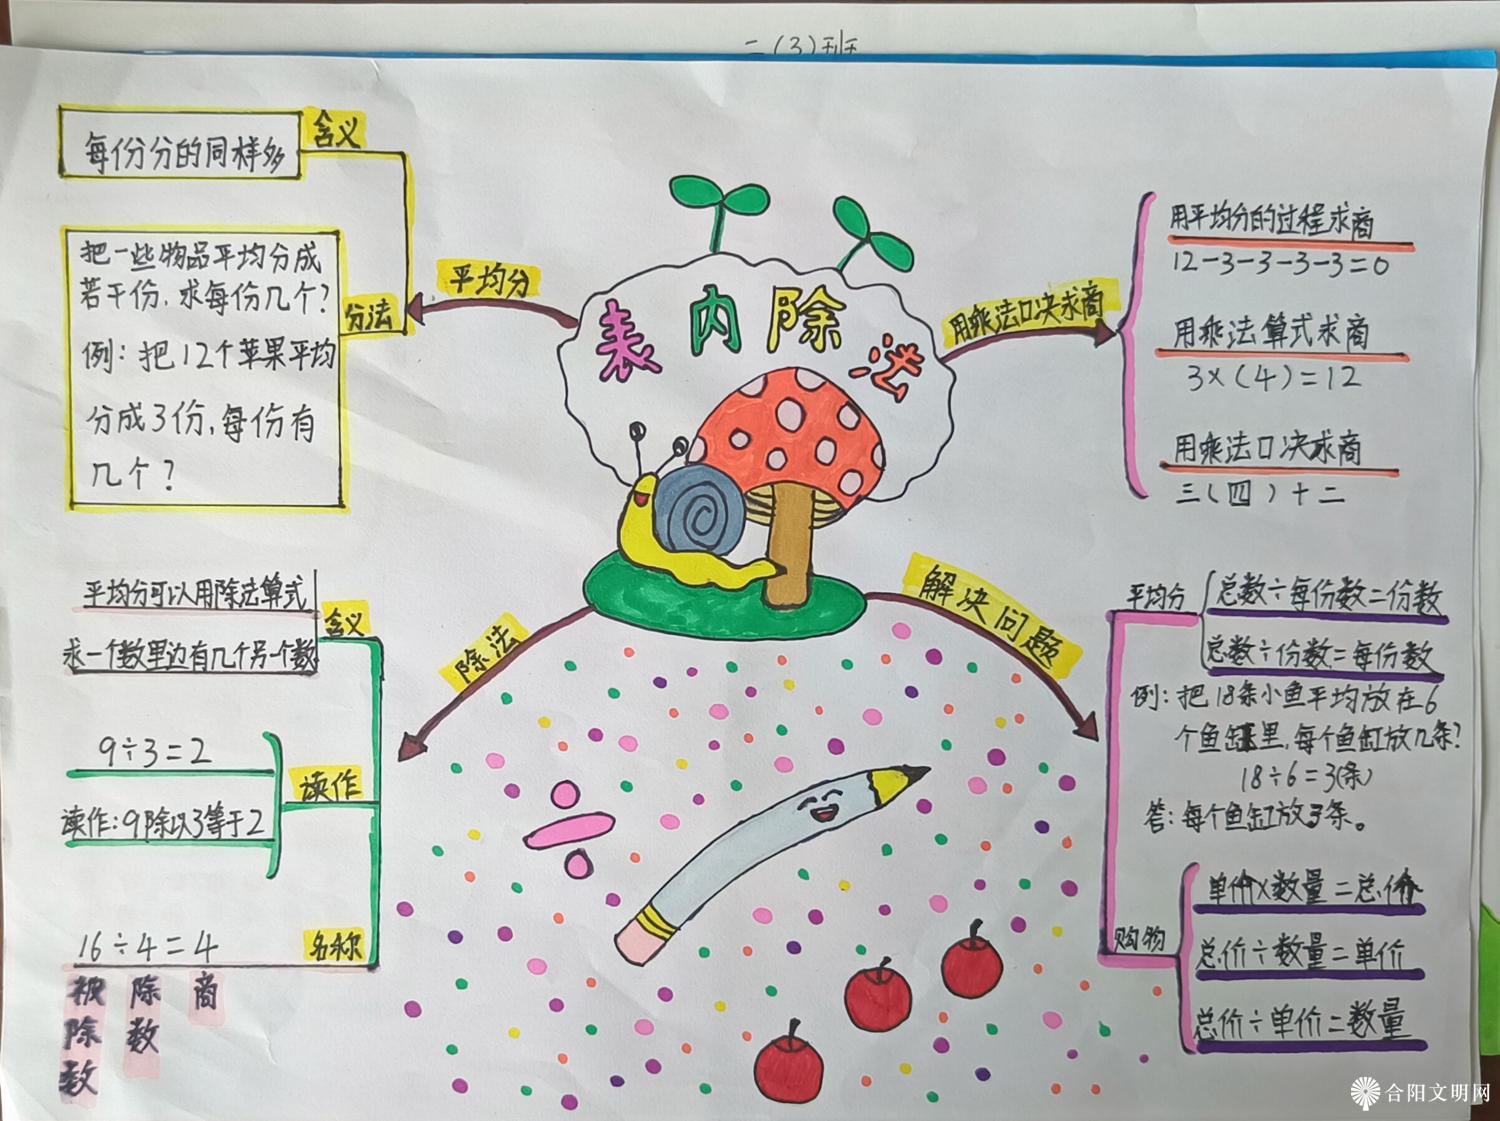 二(3)班
表内除法
平均分
含义
每份分的同样多
分法
把一些物品平均分成
若干份,求每份几个?
例:把12个苹果平均
分成3份,每份有
几个?
用乘法口决求商
用平均分的过程求商
12-3-3-3-3=0
用乘法算式求商
3×(4)=12
用乘法口决求商
三(四)十二
除法
含义
平均分可以用除法算式
求一个数里边有几个另一个数
读作
9÷3=2
读作:9除以3等于2
名称
16÷4=4
被除数
除数
商
解决问题
平均分
总数÷每份数=份数
总数÷份数=每份数
例:把18条小鱼平均放在6
个鱼缸里,每个鱼缸放几条?
18÷6=3(条)
答:每个鱼缸放3条。
购物
单价×数量=总价
总价÷数量=单价
总价÷单价=数量
合阳文明网